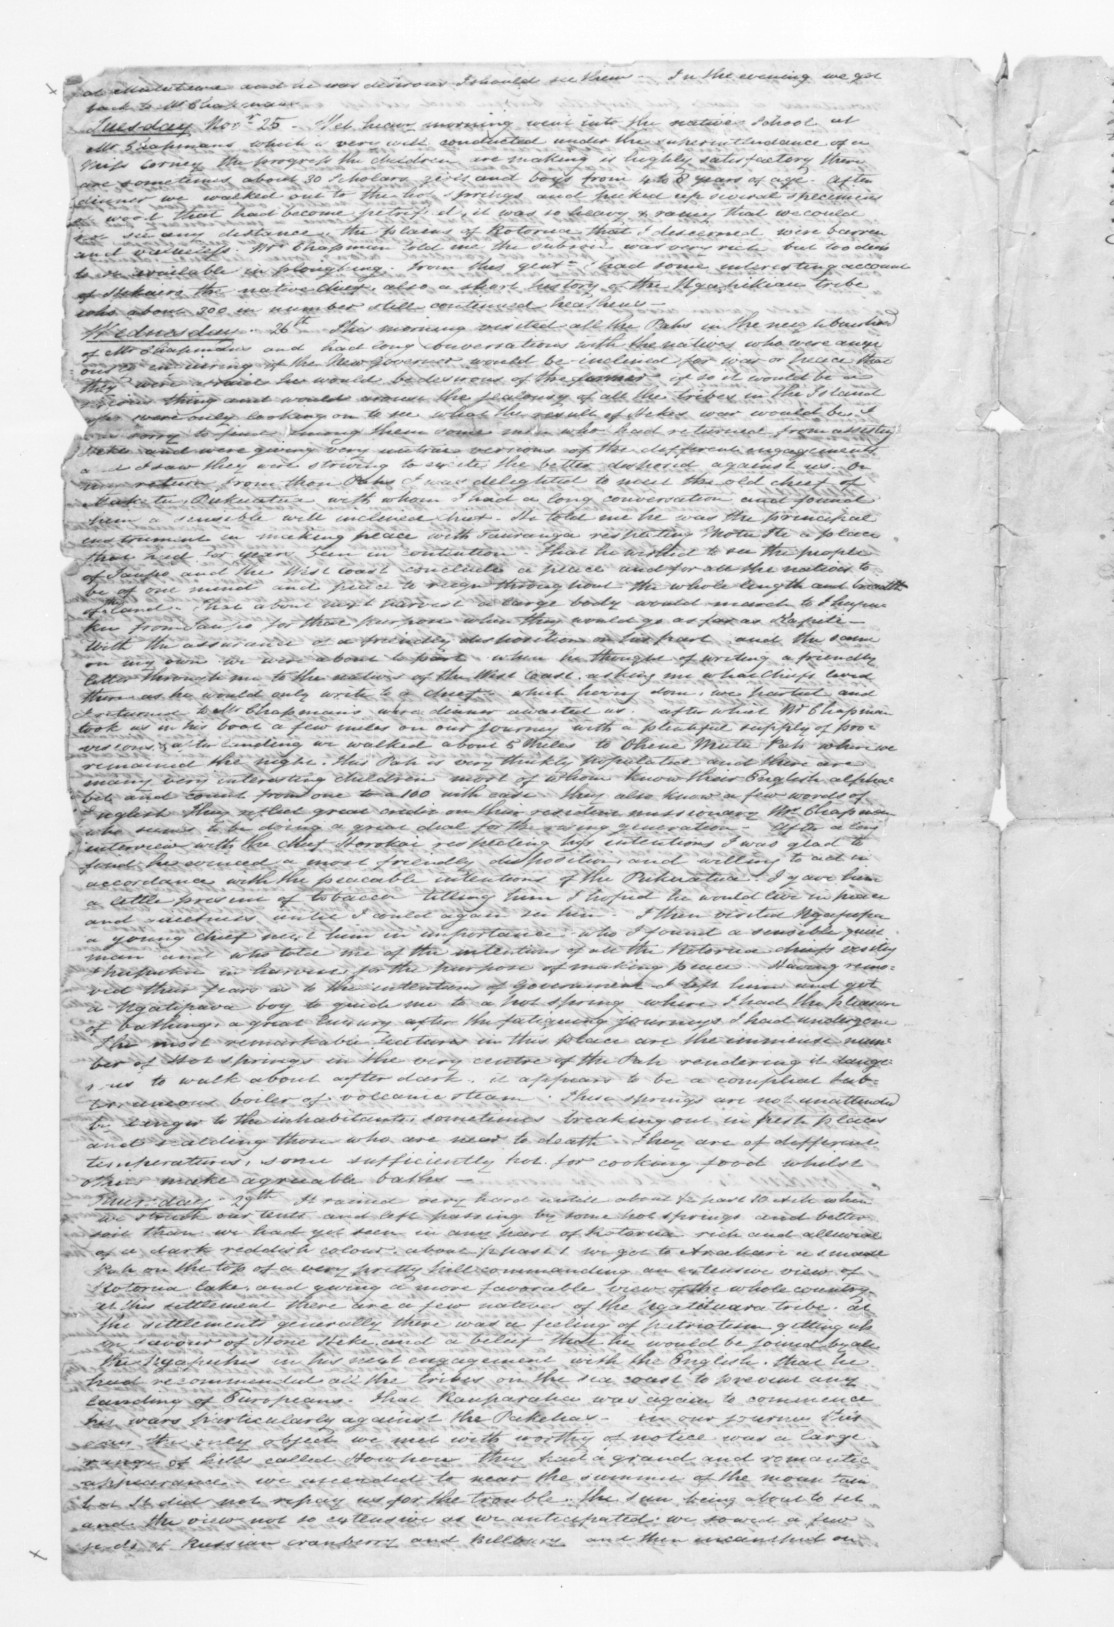 at and he was desirous I should see them - In the evening we got
back to Mr Chapmans
Tuesday Novr 25 - heavy morning went into the native School at
Mr Chapmans which is very well conducted under the superintendance of a
Miss Corney the progress the children are making is highly satisfactory there
are sometimes about 30 Scholars girls and boys from 4 to 8 years of age. After
dinner we walked out to the hot springs and picked up several specimens
of wood that had become petrified, it was so heavy & rainy that we could
not see any distance, the plains of Rotorua that I discerned were barren
and Mr Chapman told me the subsoil was very rich but too deep
to be available in ploughing. From this gentn I had some interesting account
of the native chief, also a short history of the tribe
who about 300 in number still continued heathens -
Wednesday 26th This morning visited all the Pahs in the neighbourhood
of Mr Chapmans and had long conversations with the natives who were anxi
ous in enquiring if the New Governor would be inclined for war or peace that
they were afraid he would be desirous of the former if so it would be a
serious thing and would arouse the jealousy of all the tribes in the Island
who were only looking on to see what the result of Hekes war would be. I
was sorry to find among them some men who had returned from assisting
Heke and were giving very untrue versions of the different engagements
and I saw they were striving to excite the better disposed against us. On
our return from these Pahs I was delighted to meet the old chief of
Maketu, with whom I had a long conversation and found
him a sensible well inclined He told me he was the principal
instrument in making peace with Tauranga respecting a place
that had for years been in contention That he wished to see the people
of Taupo and the West Coast conclude a peace and for all the nation to
be of one mind and peace to reign throughout the whole length and breadth
of land - That about next harvest a large body would march to
from Taupo for that purpose when they would go as far as Kapiti -
With the assurance of a friendly disposition on his part and the same
on my own we were about to part when he thought of writing a friendly
letter through me to the natives of the West Coast. asking me what Chiefs lived
there as he would only write to a chief, which being done, we parted and
returned to Mr Chapmans were dinner awaited us. after which Mr Chapman
took us in his boat a few miles on our journey with a plentiful supply of pro-
visions, & after landing we walked about 5 Miles to Ohene Mutu Pah where we
remained the night. This Pah is very thickly populated and there are
many very interesting children most of whom know their English alpha-
bet and count from one to a 100 with ease they also know a few words of
English They reflect great credit on their resident missionary Mr Chapman
who seems to be doing a great deal for the rising generation - After a long
interview with the chief respecting his intentions I was glad to
find he evinced a most friendly disposition, and willing to act in
accordance with the peacable intentions of the I gave him
a little present of tobacco telling him I hoped he would live in peace
and quietness until I could again see him. I then visited
a young chief next him in importance who I found a sensible quiet
man and who told me of the intentions of all the Rotorua chiefs visiting
in harvest for the purpose of making peace. Having remo-
ved their fears as to the intentions of government I left him and got
a Ngatipava boy to guide me to a hot spring where I had the pleasure
of bathing, a great luxury after the fatiguing journeys I had undergone
The most remarkable features in this place are the immense num-
ber of Hot springs in the very centre of the Pah rendering it dange-
rous to walk about after dark. it appears to be a compleat sub-
terraneous boiler of volcanic steam. These springs are not unattended
by danger to the inhabitants, sometimes breaking out in fresh places
and scalding those who are near to death. They are of different
temperatures, some sufficiently hot for cooking food whilst
others make agreeable baths -
Thursday - 29th It rained very hard until about ½ past 10 oclk when
we struck our tents and left passing by some hot springs and better
soil than we had yet seen in any part of Rotorua rich and alluvial
of a dark reddish colour. about ½ past 1 we got to a small
Pah on the top of a very pretty hill commanding an extensive view of
Rotorua lake, and giving a more favorable view of the whole country.
at this settlement there are a few natives of the tribe. at
the settlements generally there was a feeling of patriotism getting up
in favour of Hone Heke and a belief that he would be joined by all
the Ngapuhis in his next engagement with the English. that he
had recommended all the tribes on the sea coast to prevent any
landing of Europeans. That Rauparaha was again to commence
his wars particularly against the Pakehas - in our journey this
day the only object we met with worthy of notice was a large
range of hills called they had a grand and romantic
appearance. we ascended to near the summit of the mountain
but it did not repay us for the trouble. the sun being about to set
and the view not so extensive as we anticipated. we sowed a few
seeds of Russian cranberry and and then encamped on